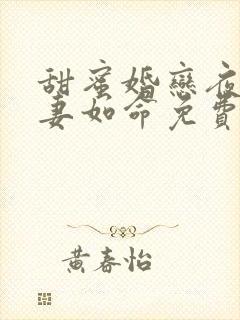 甜蜜婚戀夜
妻如命免費
黃春怡